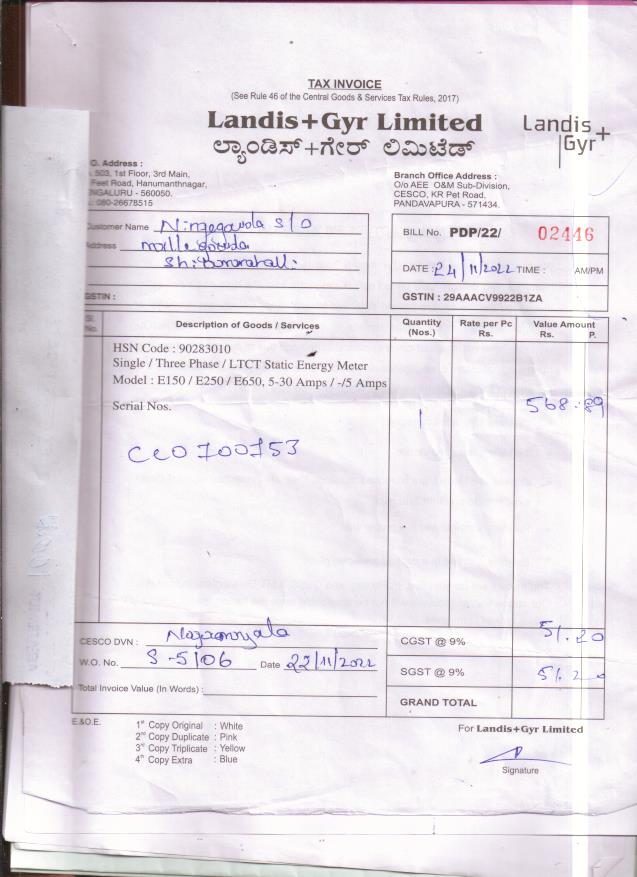 TAX INVOICE
(See Rule 46 of the Central Goods & Services Tax Rules, 2017)
Landis+Gyr Limited
ಲ್ಯಾಂಡಿಸ್+ಗೇರ್ ಲಿಮಿಟೆಡ್
Landis+
Gyr
O. Address :
503, 1st Floor, 3rd Main,
Feet Road, Hanumanthnagar,
NGALURU - 560050.
080-26678515
Branch Office Address :
O/o AEE O&M Sub-Division,
CESCO, KR Pet Road,
PANDAVAPURA - 571434.
Customer Name Ningegowda S/O
Address
GSTIN :
BILL No. PDP/22/ 02446
DATE : 24/11/2022 TIME : AM/PM
GSTIN : 29AAACV9922B1ZA
Sl. No. Description of Goods / Services Quantity (Nos.) Rate per Pc Rs. Value Amount Rs. P.
HSN Code : 90283010
Single / Three Phase / LTCT Static Energy Meter
Model : E150 / E250 / E650, 5-30 Amps / -/5 Amps
Serial Nos. 1 568.89
CESCO DVN :
W.O. No. S-5106 Date 22/11/2022
Total Invoice Value (In Words) :
CGST @ 9% 51.20
SGST @ 9% 51.20
GRAND TOTAL
E.&O.E.
1st Copy Original : White
2nd Copy Duplicate : Pink
3rd Copy Triplicate : Yellow
4th Copy Extra : Blue
For Landis+Gyr Limited
Signature